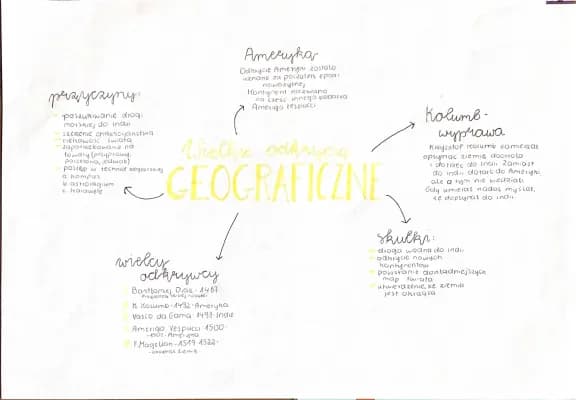 Ameryka
Odkrycie Ameryki zostało
uznane za początek epoki
nowożytnej
Kontynent nazwano
na cześć innego badacza
Amerigo Vespucci
przyczyny:
poszukiwanie drogi
morskiej do Indii
szerzenie chrześcijaństwa
ciekawość świata
zapotrzebowanie na
towary (przyprawy,
porcelana, jedwab)
postęp w technice
a. kompas
b. astrolabium
c. karawele
Kolumb-
wyprawa
Krzysztof Kolumb zamierzał
opłynąć ziemię dookoła
i dotrzeć do Indii. Zamiast
do Indii dotarł do Ameryki,
ale o tym nie wiedział.
Gdy umierał nadal myślał,
że dopłynął do Indii.
Wielkie odkrycia
GEOGRAFICZNE
skutki:
droga wodna do Indii
odkrycie nowych
kontynentów
powstanie dokładniejszych
map świata
utwierdzenie, że ziemia
jest okrągła
wielcy
odkrywcy
Bartłomiej Diaz - 1487
K. Kolumb - 1492 - Ameryka
Vasco da Gama - 1498 - Indie
Amerigo Vespucci 1500-
-1502 - Ameryka
F. Magellan - 1519 1522 -